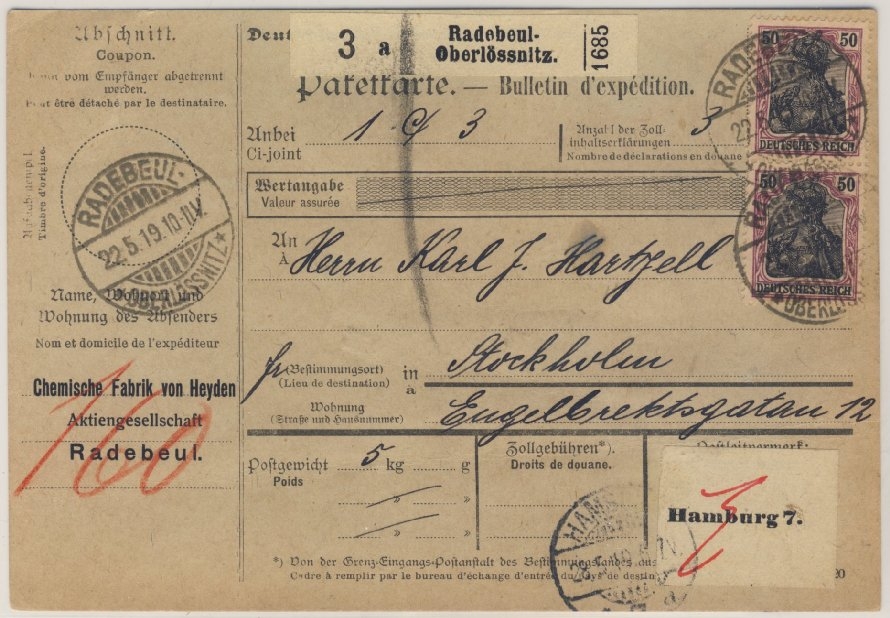 Abschnitt.
Coupon.
vom Empfänger abgetrennt
werden.
être détaché par le destinataire.
Timbre d'origine.
RADEBEUL-
22.5.19.10-11V.
*OBERLÖSSNITZ*
Name, Wohnort und
Wohnung des Absenders
Nom et domicile de l'expéditeur
Chemische Fabrik von Heyden
Aktiengesellschaft
Radebeul.
160
3 a Radebeul-
Oberlössnitz.
1685
Paketkarte. — Bulletin d'expédition.
Anbei
Ci-joint
1 3
Anzahl der Zoll-
inhaltserklärungen 3
Nombre de déclarations en douane
Wertangabe
Valeur assurée
An
À
Herrn Karl J. Hartzell
(Bestimmungsort)
(Lieu de destination)
in
à
Stockholm
Wohnung
(Straße und Hausnummer)
Engelbrektsgatan 12
Postgewicht 5 kg g
Poids
" "
" "
Zollgebühren*).
Droits de douane.
Hamburg 7.
*) Von der Grenz-Eingangs-Postanstalt des Bestimmungslandes
Ordre à remplir par le bureau d'échange d'entrée du pays de
50 50
DEUTSCHES REICH
50 50
DEUTSCHES REICH